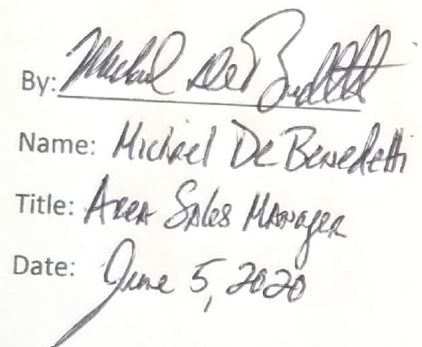 By: Michael DeBenedetti
Name: Michael DeBenedetti
Title: Area Sales Manager
Date: June 5, 2020